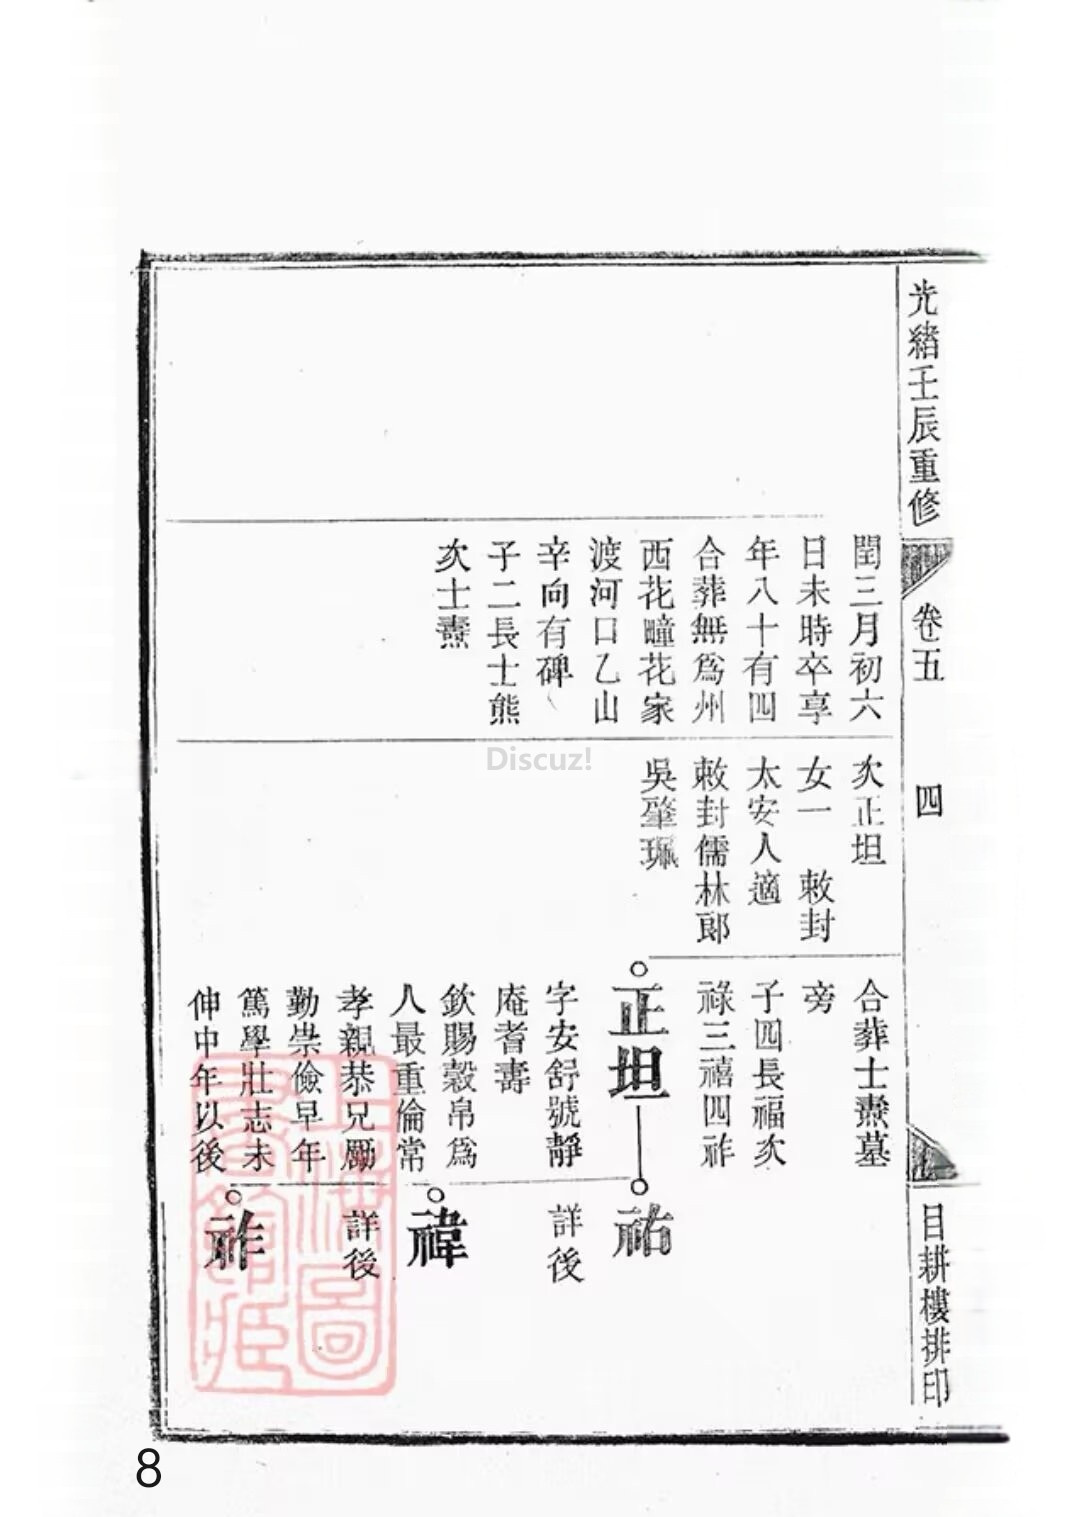 光緒壬辰重修
卷五
四
目耕樓排印
閏三月初六
日未時卒享
年八十有四
合葬無爲州
西花疃花家
渡河口乙山
辛向有碑
子二長士熊
次士燾
次正坦
女一 敕封
太安人適
敕封儒林郎
吳肇珮
合葬士燾墓
旁
子四長福次
祿三禧四祚
正坦
字安舒號靜
庵耆壽
欽賜穀帛爲
人最重倫常
孝親恭兄勵
勤崇儉早年
篤學壯志未
伸中年以後
祐
詳後
禕
詳後
祚
上海圖
書館藏
Discuz!
8